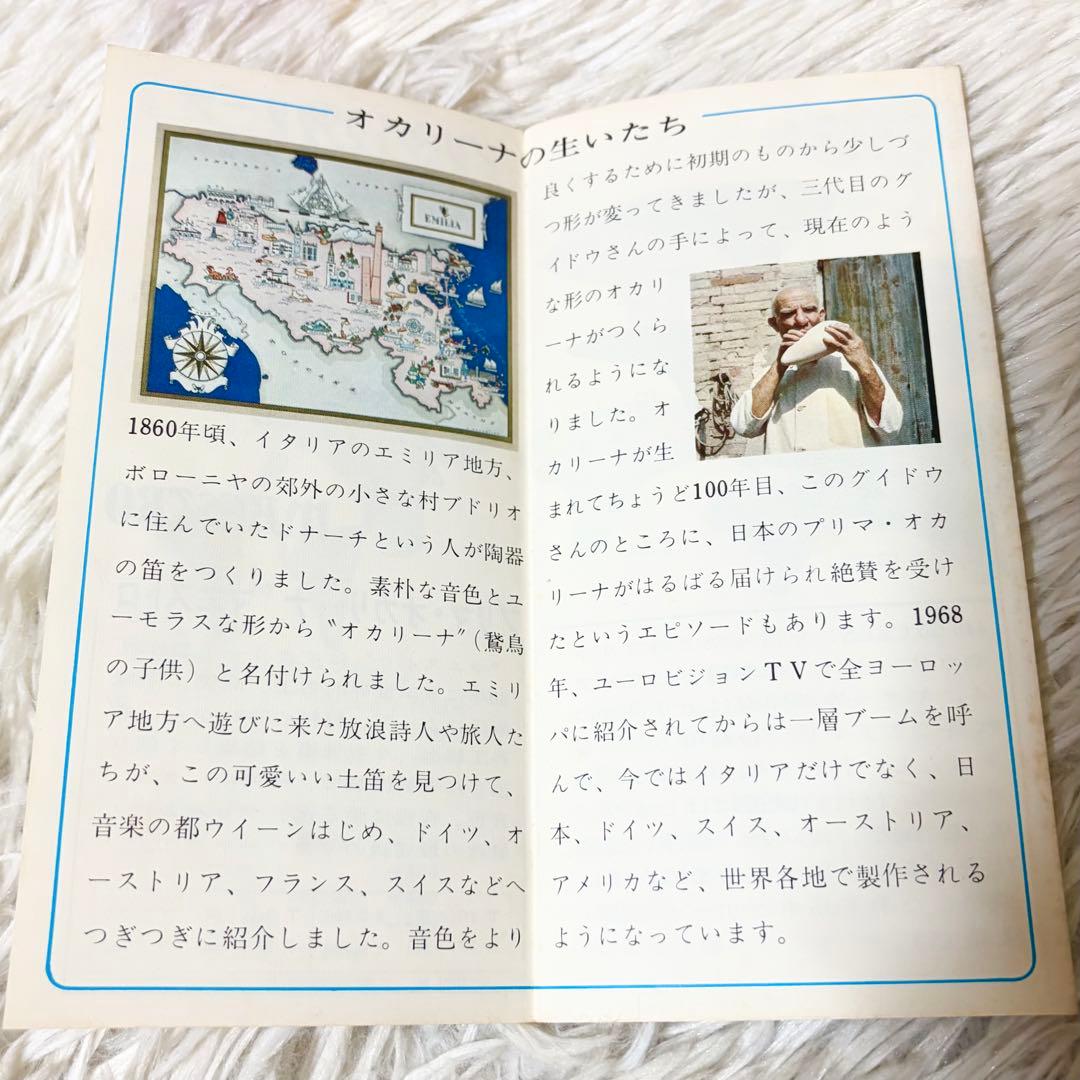 オカリーナの生いたち
EMILIA
1860年頃、イタリアのエミリア地方、
ボローニヤの郊外の小さな村ブドリオ
に住んでいたドナーチという人が陶器
の笛をつくりました。素朴な音色とユ
ーモラスな形から〝オカリーナ″(鵞鳥
の子供)と名付けられました。エミリ
ア地方へ遊びに来た放浪詩人や旅人た
ちが、この可愛いい土笛を見つけて、
音楽の都ウイーンはじめ、ドイツ、オ
ーストリア、フランス、スイスなどへ
つぎつぎに紹介しました。音色をより
良くするために初期のものから少しづ
つ形が変ってきましたが、三代目のグ
イドウさんの手によって、現在のよう
な形のオカリ
ーナがつくら
れるようにな
りました。オ
カリーナが生
まれてちょうど100年目、このグイドウ
さんのところに、日本のプリマ・オカ
リーナがはるばる届けられ絶賛を受け
たというエピソードもあります。1968
年、ユーロビジョンTVで全ヨーロッ
パに紹介されてからは一層ブームを呼
んで、今ではイタリアだけでなく、日
本、ドイツ、スイス、オーストリア、
アメリカなど、世界各地で製作される
ようになっています。